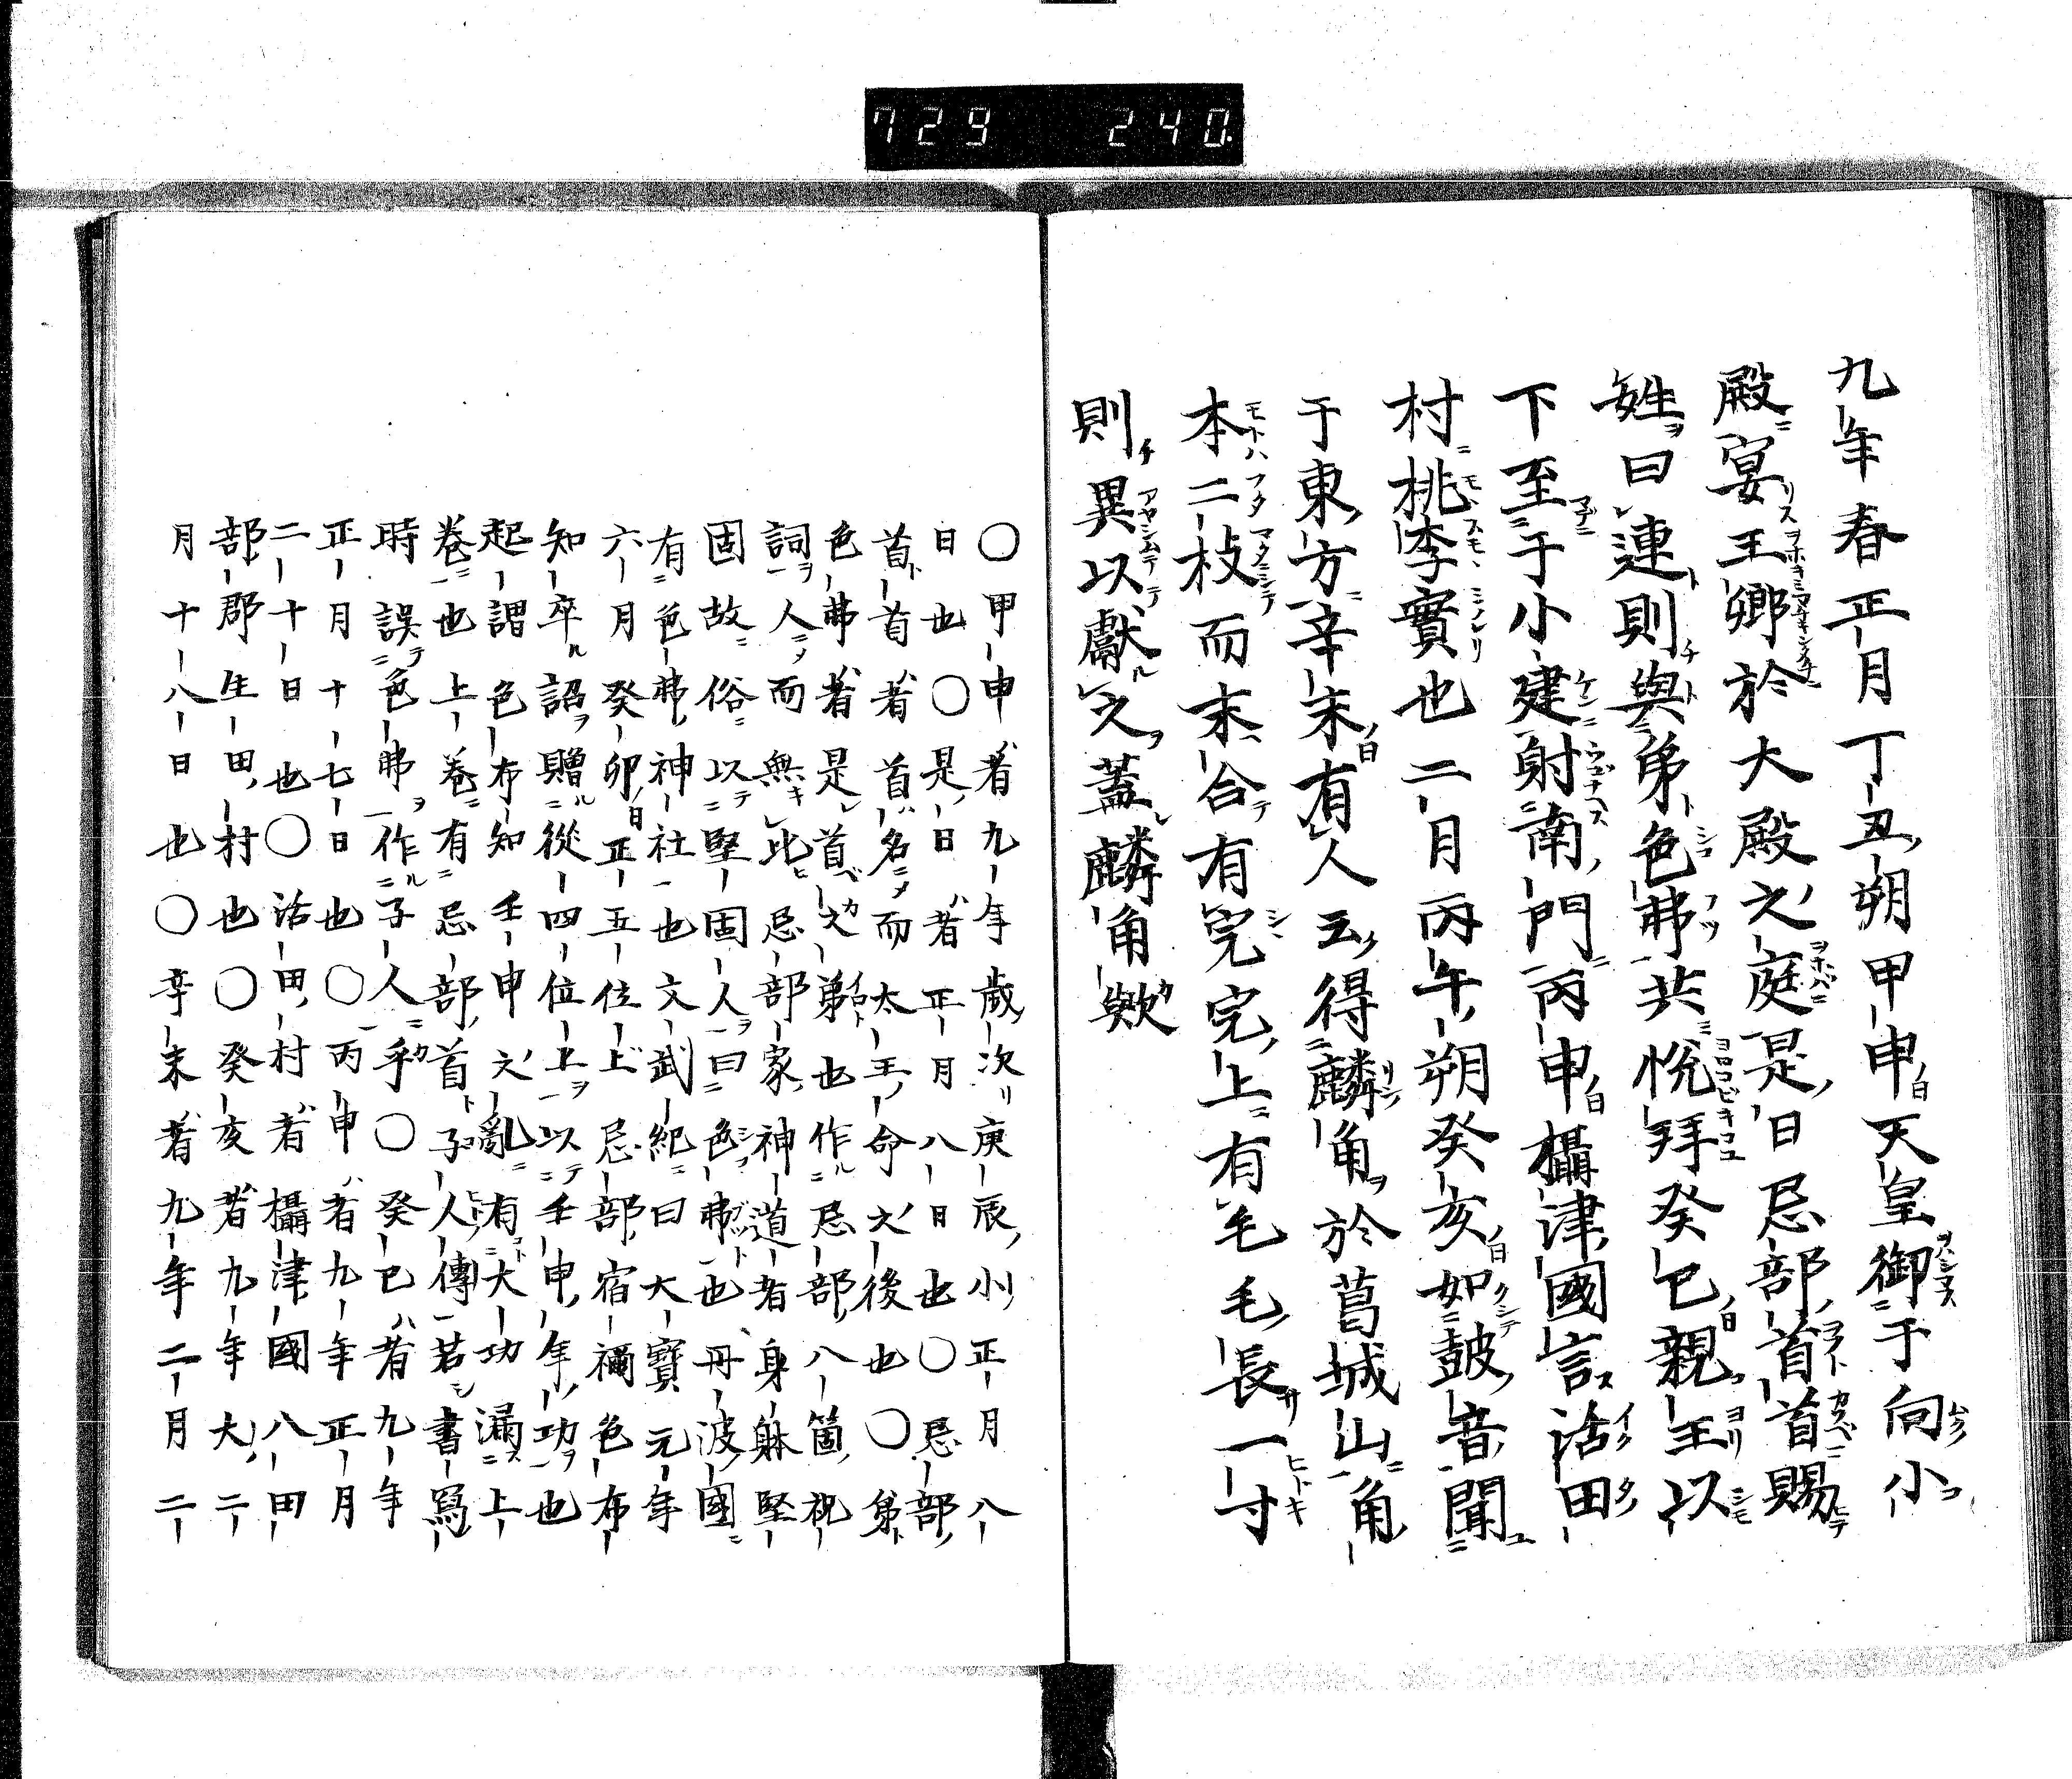 729 240
九年春正月丁丑朔甲申天皇御于向小
殿宴王卿於大殿之庭是日忌部首首賜
姓曰連則與弟色弗共悅拜癸巳親王以
下至于小建射南門丙申攝津國言活田
村桃李實也二月丙午朔癸亥如鼓音聞
于東方辛未有人云得麟角於葛城山角
本二枝而末合有宍宍上有毛毛長一寸
則異以獻之蓋麟角歟
〇甲申者九年歲次庚辰小正月八
日也〇是日者正月八日也〇忌部
首首者首名而太玉命之後也〇弟
色弗者是首之弟也作忌部八箇祝
詞人而無比忌部家神道者身躰堅
固故俗以堅固人曰色弗也丹波國
有色弗神社也文武紀曰大寶元年
六月癸卯正五位上忌部宿禰色布
知卒詔贈從四位上以壬申年功也
起謂色布知壬申之亂有大功漏上
卷也上卷有忌部首子人傳若書寫
時誤色弗作子人乎〇癸巳者九年
正月十七日也〇丙申者九年正月
二十日也〇活田村者攝津國八田
部郡生田村也〇癸亥者九年大二
月十八日也〇辛未者九年二月二